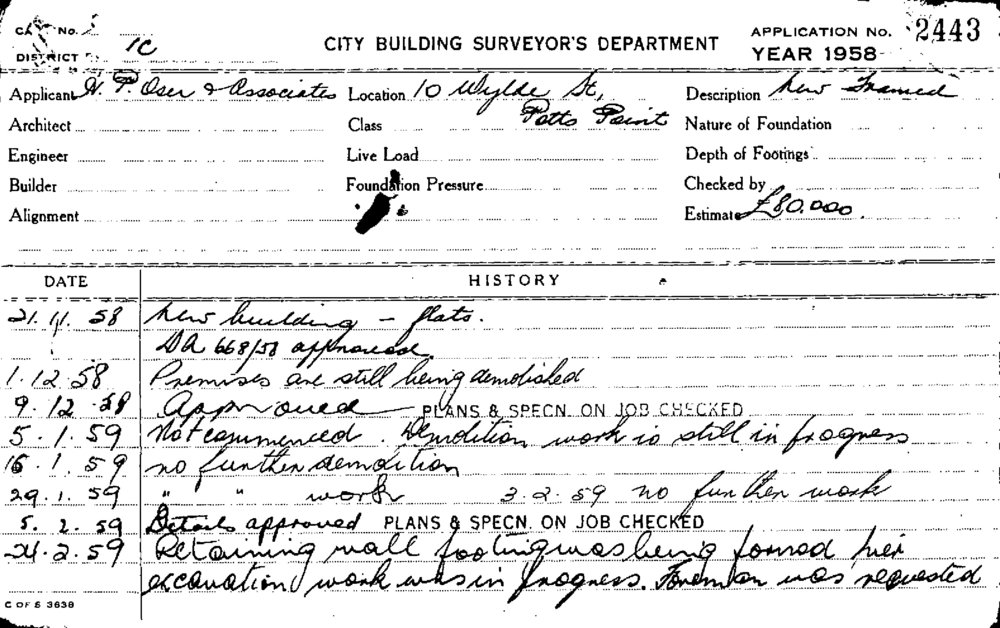 CARD No. 5
DISTRICT 1C
CITY BUILDING SURVEYOR'S DEPARTMENT
APPLICATION No. 2443
YEAR 1958
Applicant H. P. Oser & Associates Location 10 Wylde St, Description New Framed
Architect Class Potts Point Nature of Foundation
Engineer Live Load Depth of Footings
Builder Foundation Pressure Checked by
Alignment Estimate £80,000.
DATE HISTORY
21. 11. 58 New building - flats.
DA 668/58 approved.
1. 12. 58 Premises are still being demolished
9. 12. 58 Approved PLANS & SPECN. ON JOB CHECKED
5. 1. 59 Not commenced. Demolition work is still in progress
16. 1. 59 no further demolition
29. 1. 59 " " work 3. 2. 59 no further work
5. 2. 59 Details approved PLANS & SPECN. ON JOB CHECKED
24. 2. 59 Retaining wall footing was being formed pier
excavation work was in progress. Foreman was requested
C OF S 3638